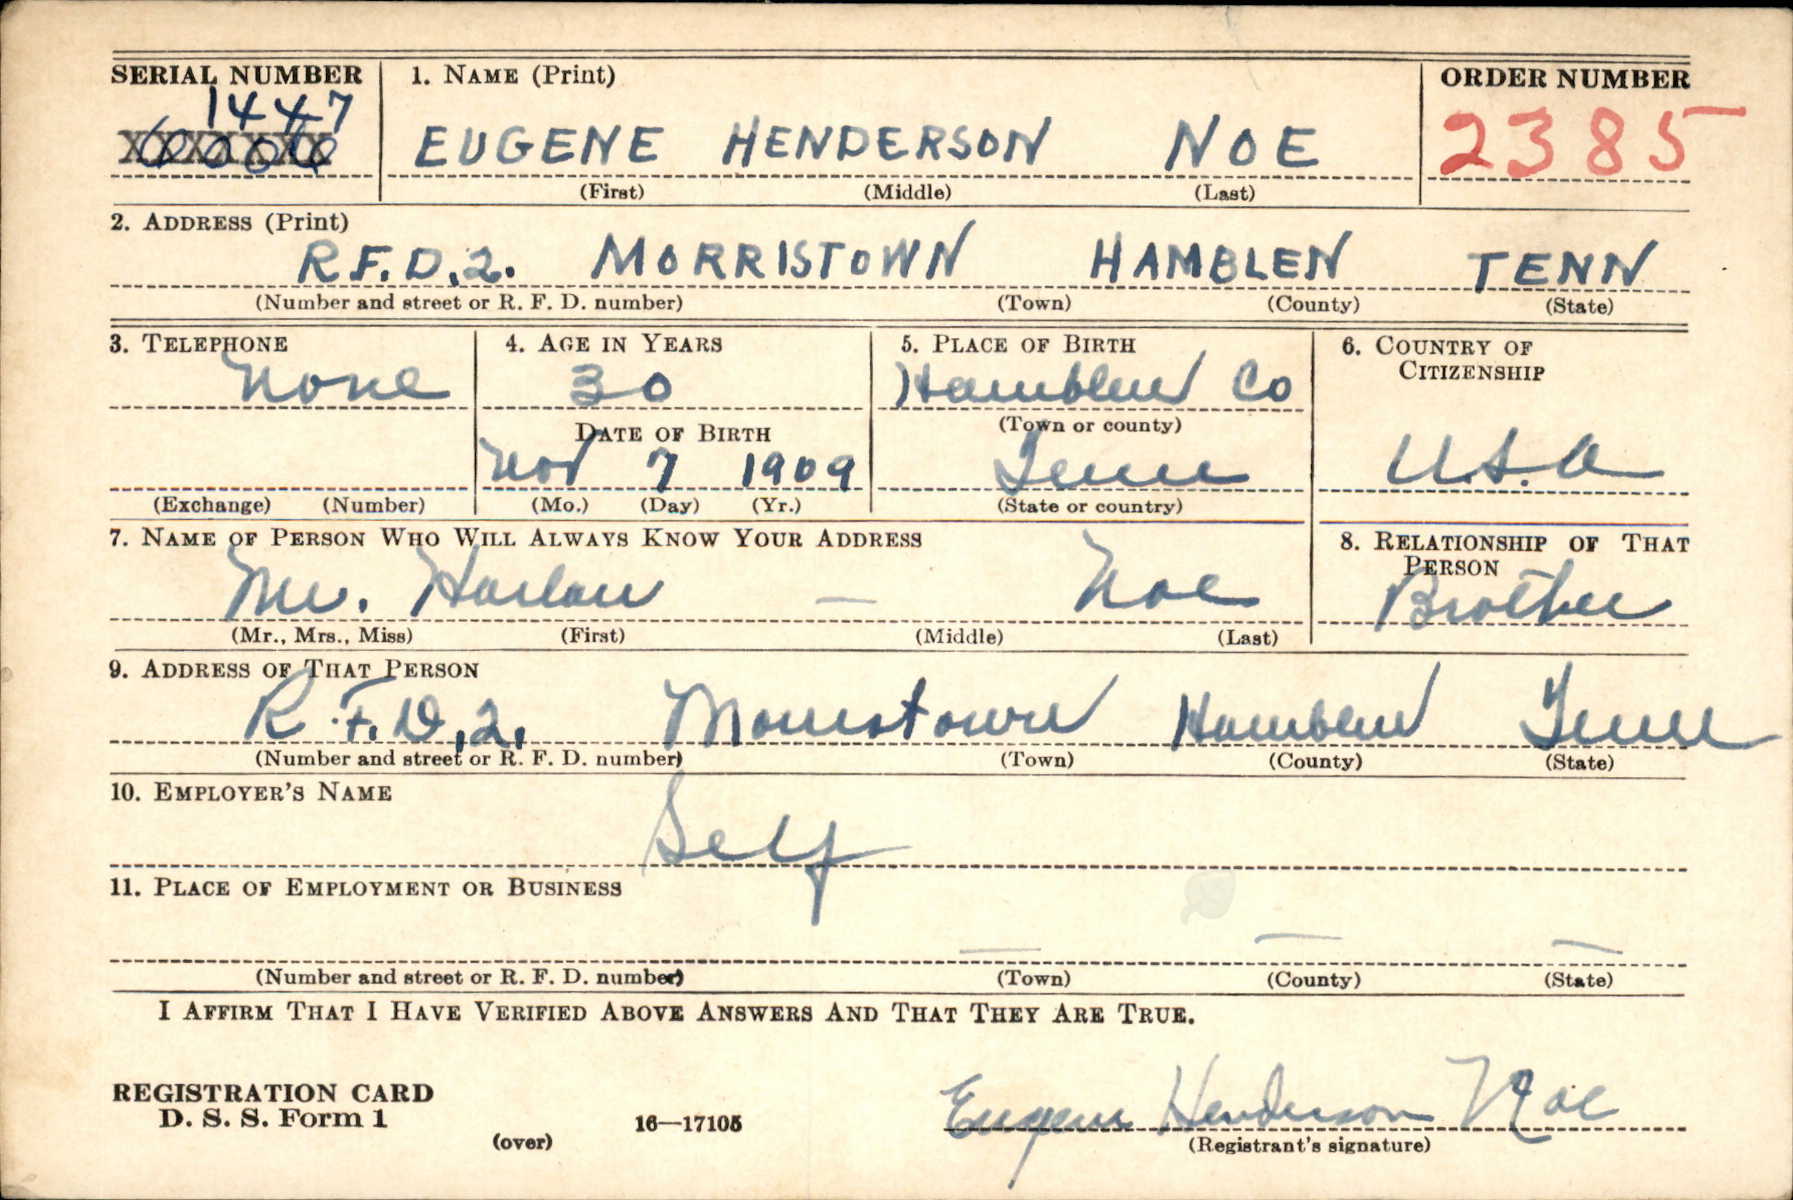 SERIAL NUMBER 1. NAME (Print) ORDER NUMBER
1447
EUGENE HENDERSON NOE 2385
(First) (Middle) (Last)
2. ADDRESS (Print)
R.F.D.2. MORRISTOWN HAMBLEN TENN
(Number and street or R. F. D. number) (Town) (County) (State)
3. TELEPHONE 4. AGE IN YEARS 5. PLACE OF BIRTH 6. COUNTRY OF
CITIZENSHIP
None 30 Hamblen Co
DATE OF BIRTH (Town or county)
Nov 7 1909 Tenn U.S.A
(Exchange) (Number) (Mo.) (Day) (Yr.) (State or country)
7. NAME OF PERSON WHO WILL ALWAYS KNOW YOUR ADDRESS 8. RELATIONSHIP OF THAT
PERSON
Mr. Harlan — Noe Brother
(Mr., Mrs., Miss) (First) (Middle) (Last)
9. ADDRESS OF THAT PERSON
R.F.D.2. Morristown Hamblen Tenn
(Number and street or R. F. D. number) (Town) (County) (State)
10. EMPLOYER'S NAME
Self
11. PLACE OF EMPLOYMENT OR BUSINESS
— — —
(Number and street or R. F. D. number) (Town) (County) (State)
I AFFIRM THAT I HAVE VERIFIED ABOVE ANSWERS AND THAT THEY ARE TRUE.
REGISTRATION CARD
D. S. S. Form 1 16—17105 Eugene Henderson Noe
(over) (Registrant's signature)